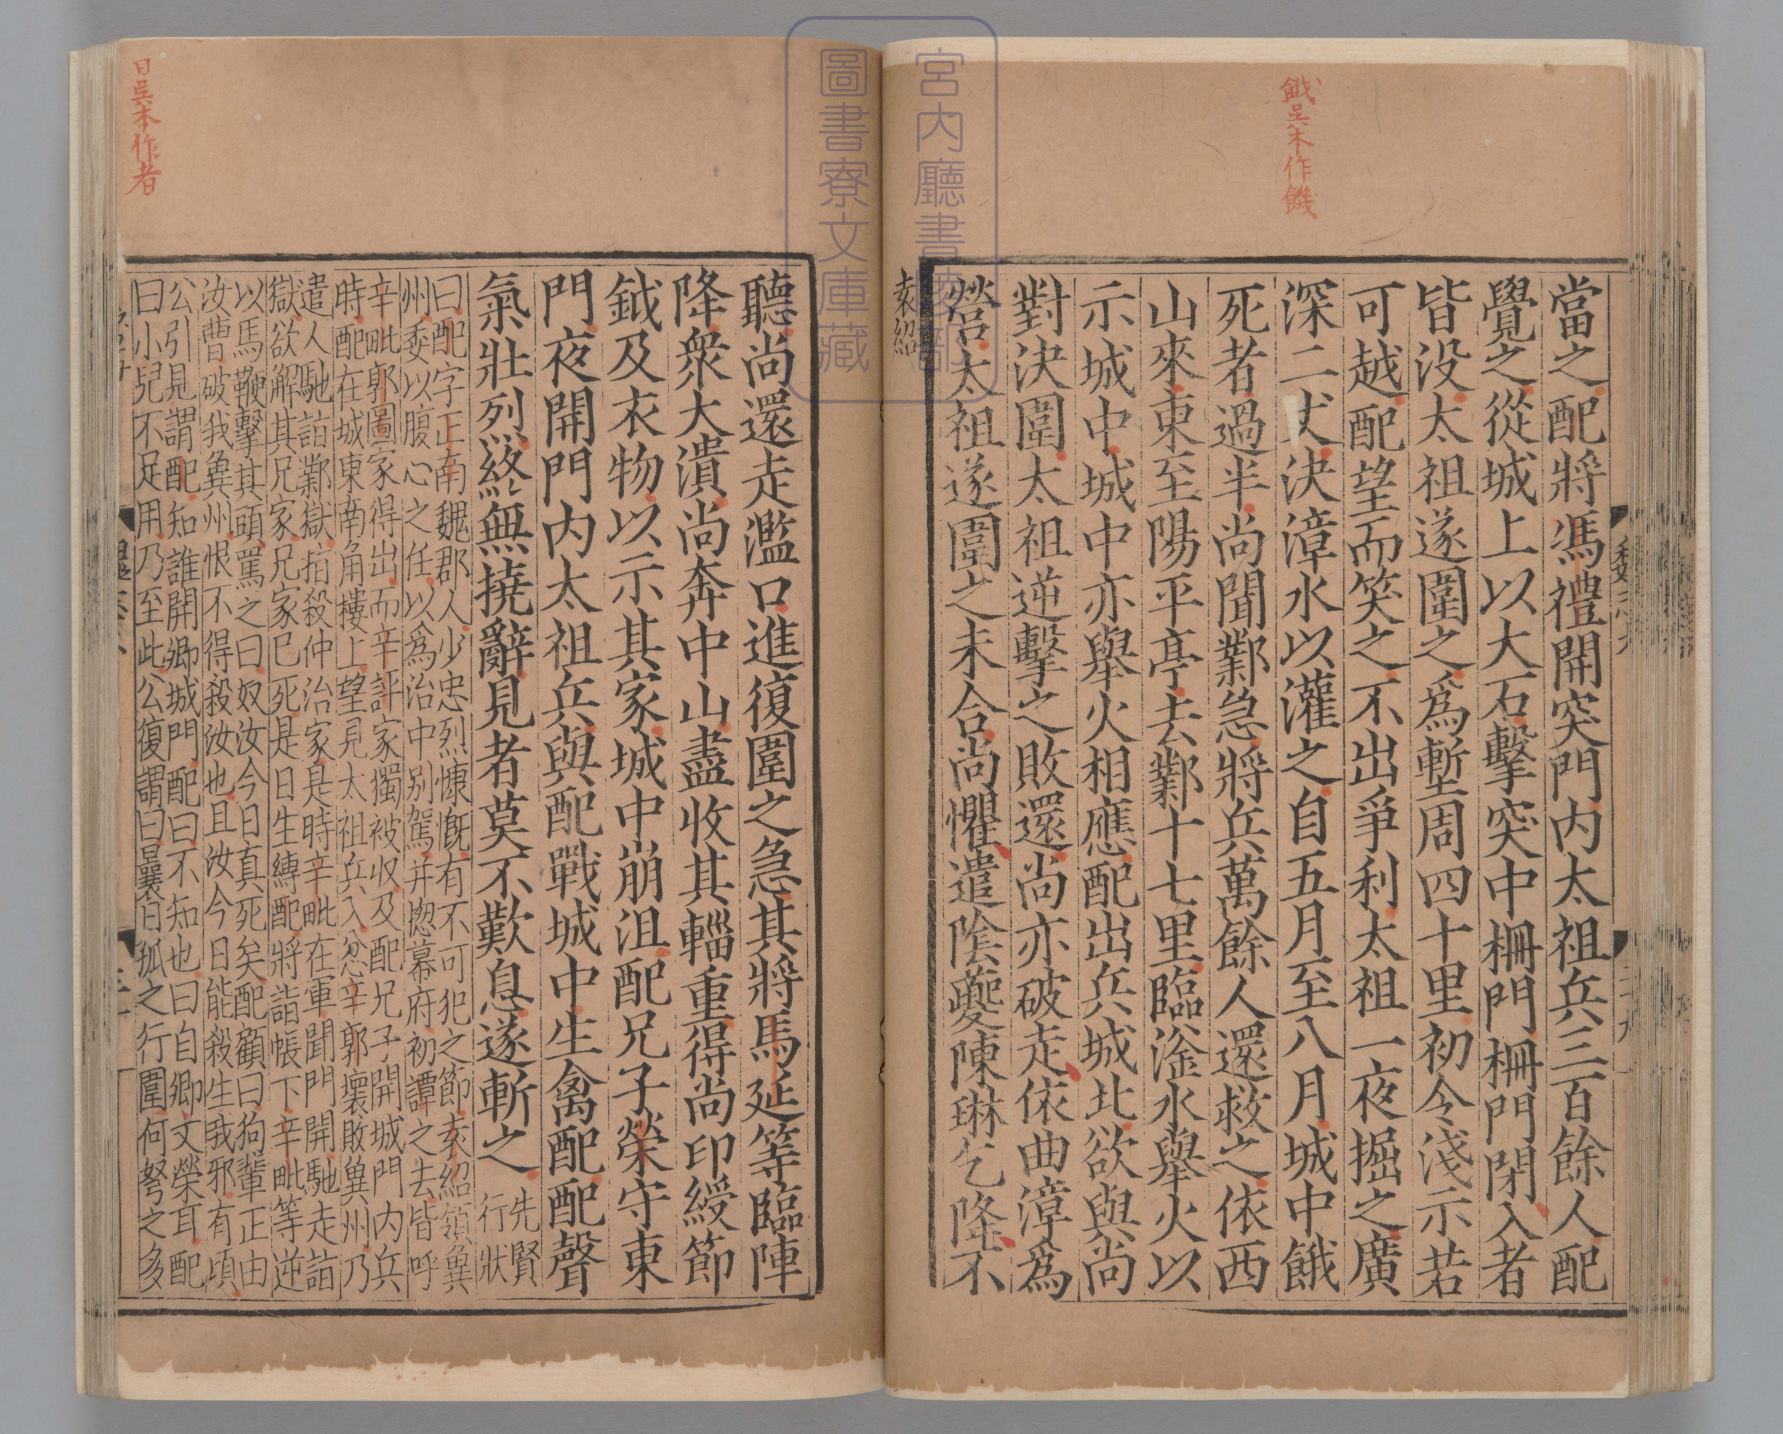 餓吳本作饑
當之配將馮禮開突門内太祖兵三百餘人配
覺之從城上以大石擊突中柵門柵門閉入者
皆没太祖遂圍之爲塹周四十里初令淺示若
可越配望而笑之不出爭利太祖一夜掘之廣
深二丈決漳水以灌之自五月至八月城中餓
死者過半尚聞鄴急將兵萬餘人還救之依西
山來東至陽平亭去鄴十七里臨滏水舉火以
示城中城中亦舉火相應配出兵城北欲與尚
對決圍太祖逆擊之敗還尚亦破走依曲漳爲
營太祖遂圍之未合尚懼遣陰夔陳琳乞降不
袁紹
宮内廳書陵部
圖書寮文庫藏
聽尚還走濫口進復圍之急其將馬延等臨陣
降衆大潰尚奔中山盡收其輜重得尚印綬節
鉞及衣物以示其家城中崩沮配兄子榮守東
門夜開門内太祖兵與配戰城中生禽配配聲
氣壯烈終無撓辭見者莫不歎息遂斬之
先賢
行狀
曰配字正南魏郡人少忠烈慷慨有不可犯之節袁紹領兾
州委以腹心之任以爲治中别駕并揔幕府初譚之去皆呼
辛毗郭圖家得出而辛評家獨被收及配兄子開城門内兵
時配在城東南角樓上望見太祖兵入忿辛郭壞敗兾州乃
遣人馳詣鄴獄指殺仲治家是時辛毗在軍聞門開馳走詣
獄欲解其兄家兄家已死是日生縛配將詣帳下辛毗等逆
以馬鞭擊其頭罵之曰奴汝今日真死矣配顧曰狗輩正由
汝曹破我兾州恨不得殺汝也且汝今日能殺生我邪有頃
公引見謂配知誰開卿城門配曰不知也曰自卿文榮耳配
曰小兒不足用乃至此公復謂曰曩日孤之行圍何弩之多
日吳本作者